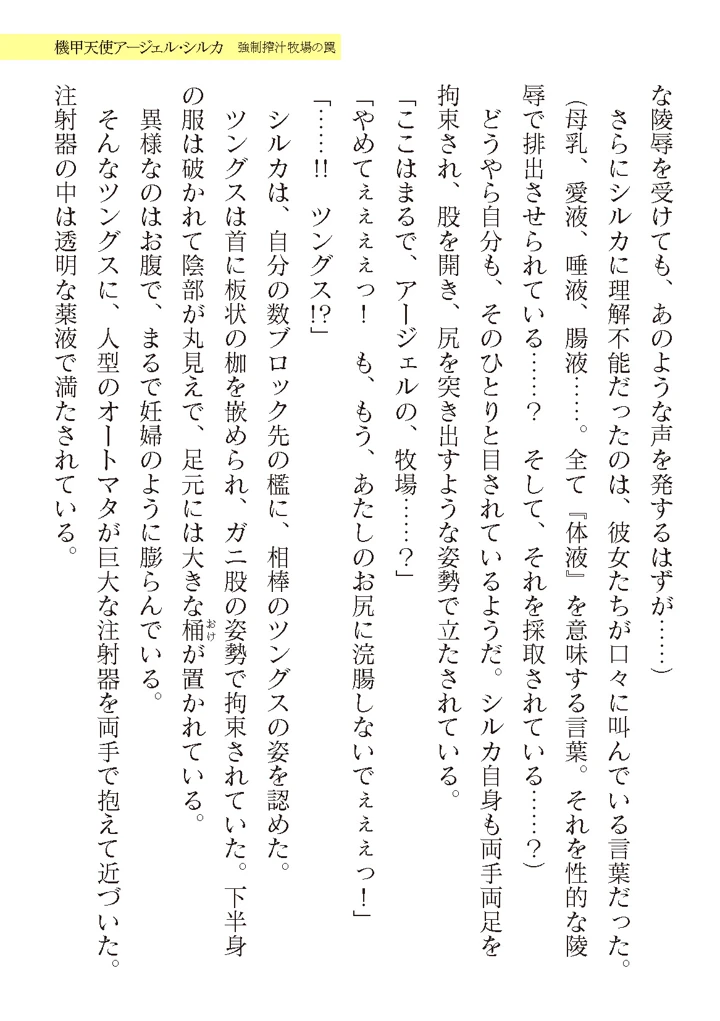 機甲天使アージェル・シルカ　強制搾汁牧場の罠
な陵辱を受けても、あのような声を発するはずが……)
　さらにシルカに理解不能だったのは、彼女たちが口々に叫んでいる言葉だった。
(母乳、愛液、唾液、腸液……。全て『体液』を意味する言葉。それを性的な陵
辱で排出させられている……？　そして、それを採取されている……？)
　どうやら自分も、そのひとりと目されているようだ。シルカ自身も両手両足を
拘束され、股を開き、尻を突き出すような姿勢で立たされている。
「ここはまるで、アージェルの、牧場……？」
「やめてぇぇぇぇっ！　も、もう、あたしのお尻に浣腸しないでぇぇぇっ！」
「……!!　ツングス!?」
　シルカは、自分の数ブロック先の檻に、相棒のツングスの姿を認めた。
　ツングスは首に板状の枷を嵌められ、ガニ股の姿勢で拘束されていた。下半身
の服は破かれて陰部が丸見えで、足元には大きな桶おけが置かれている。
　異様なのはお腹で、まるで妊婦のように膨らんでいる。
　そんなツングスに、人型のオートマタが巨大な注射器を両手で抱えて近づいた。
注射器の中は透明な薬液で満たされている。